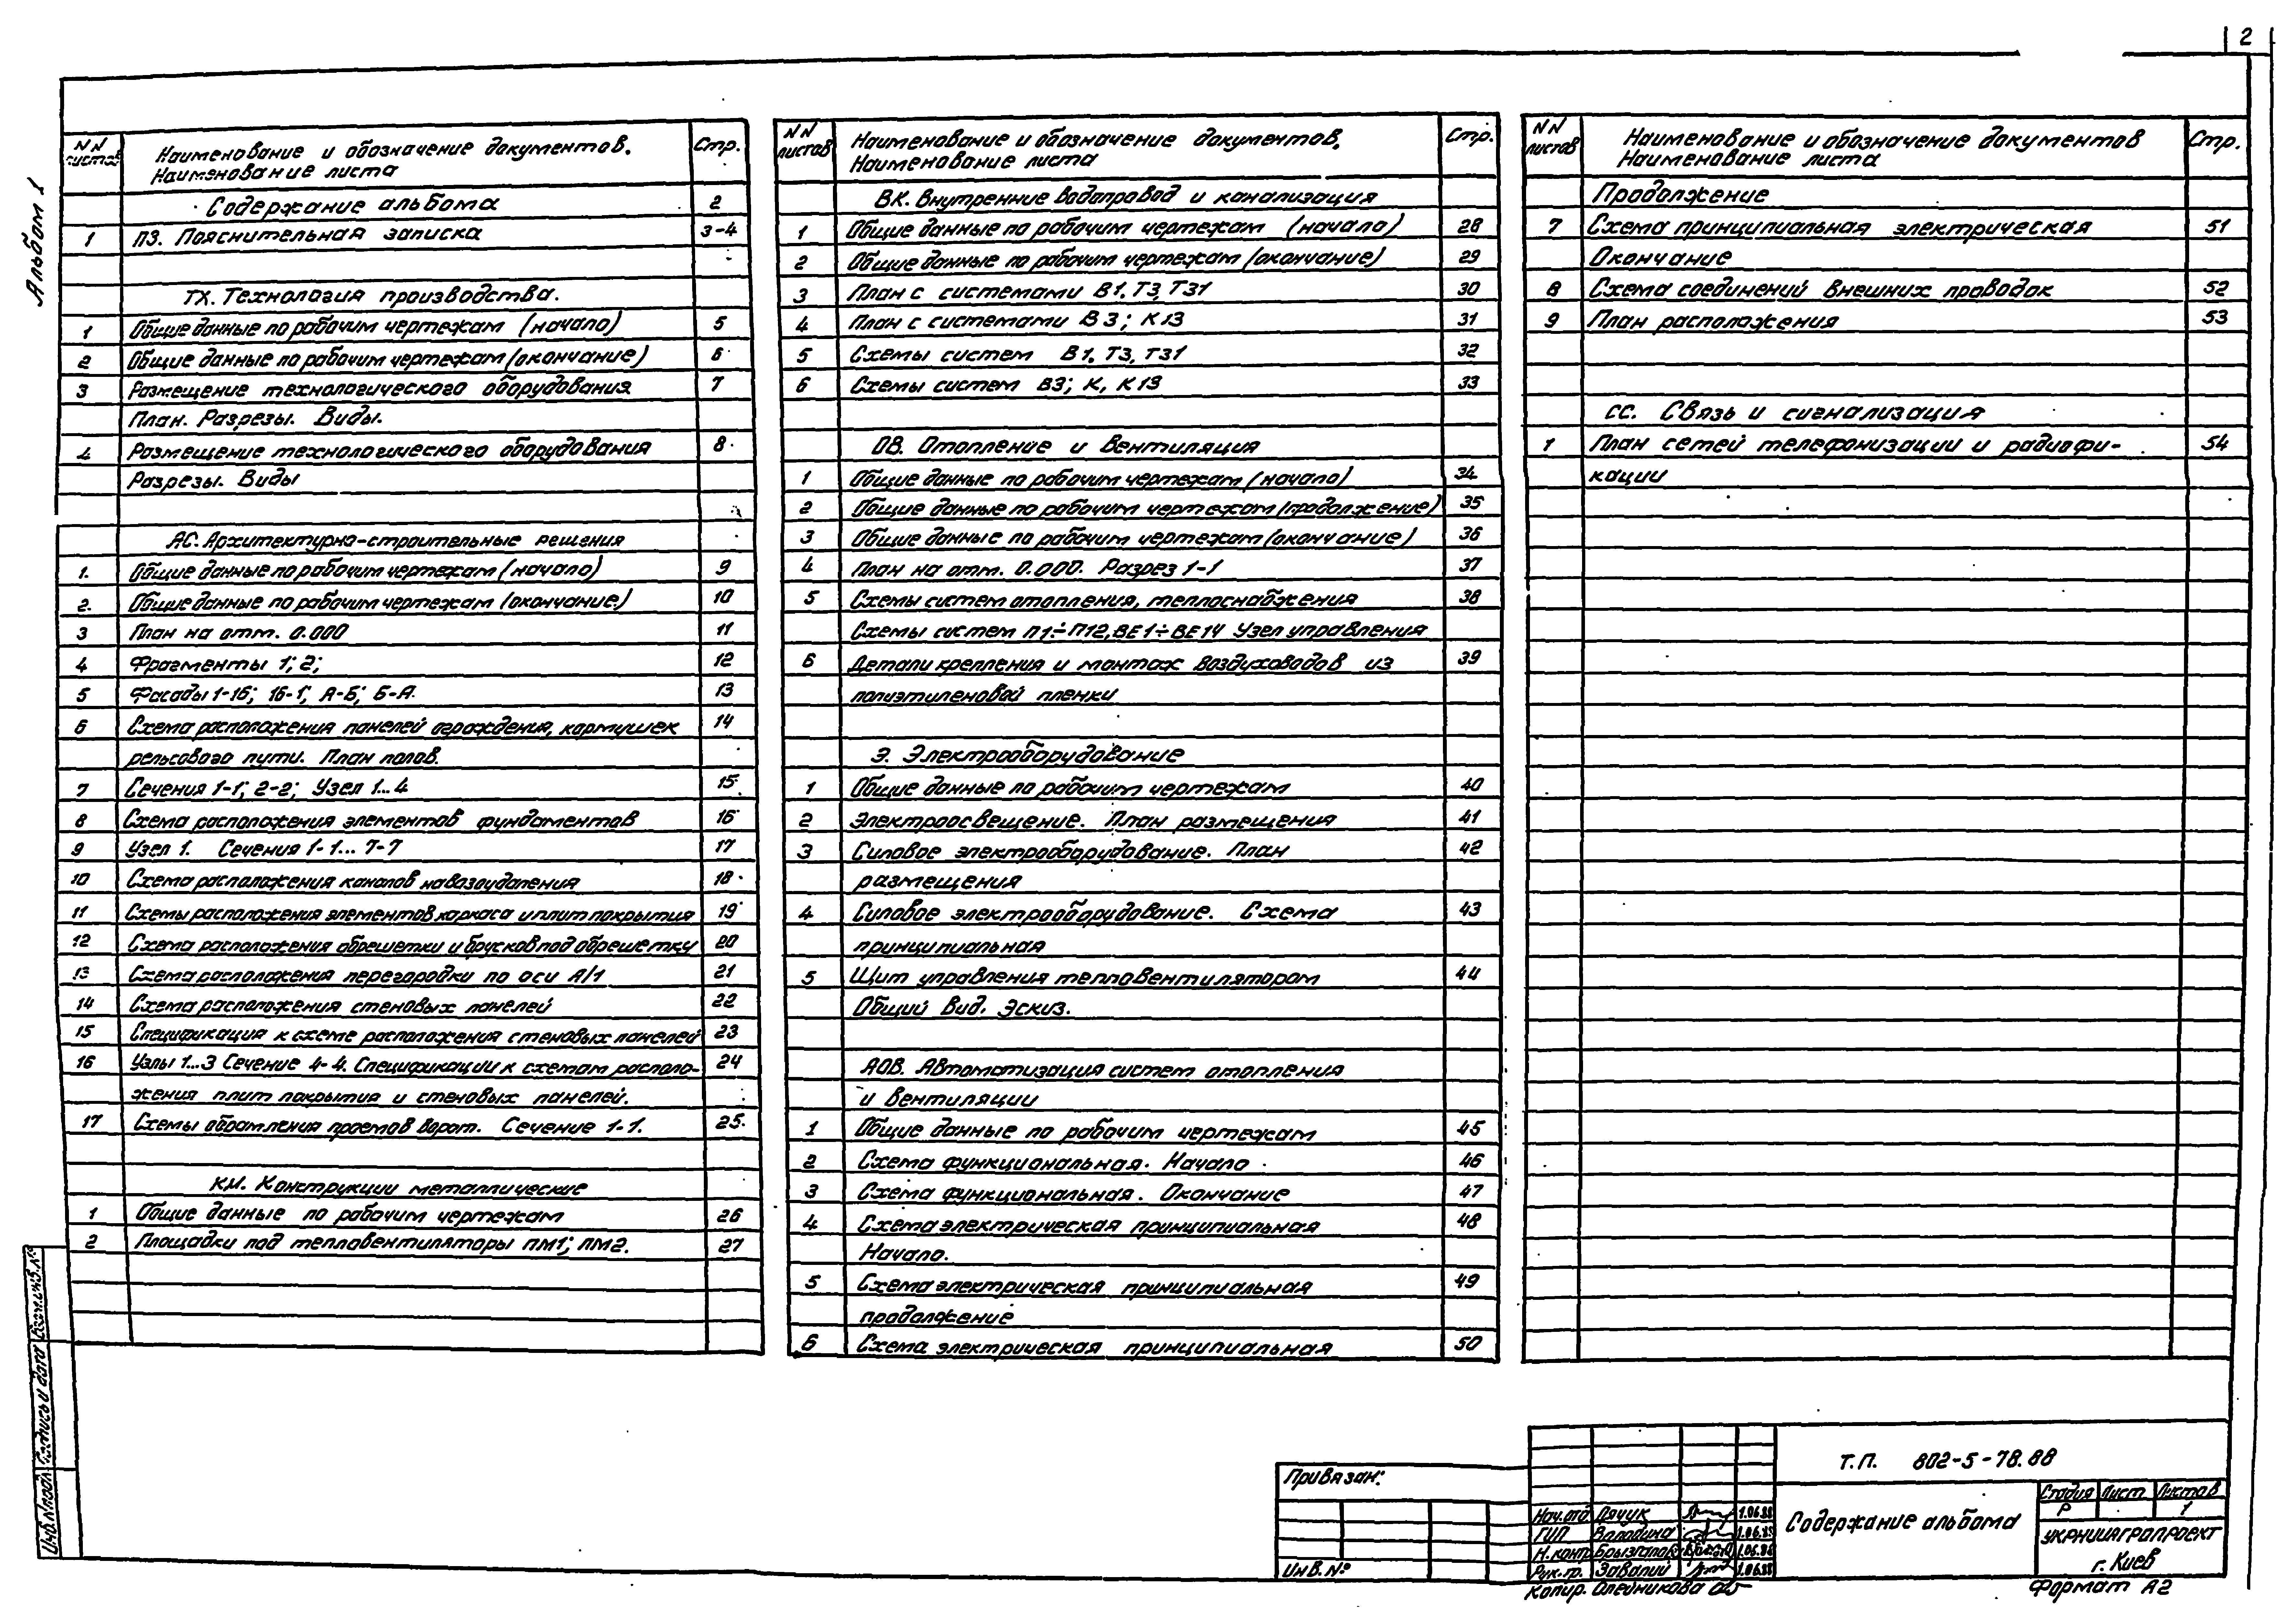 2
Альбом 1
NN листов Наименование и обозначение документов. Стр.
Наименование листа
Содержание альбома 2
1 ПЗ. Пояснительная записка 3-4
ТХ. Технология производства.
1 Общие данные по рабочим чертежам (начало) 5
2 Общие данные по рабочим чертежам (окончание) 6
3 Размещение технологического оборудования 7
План. Разрезы. Виды.
4 Размещение технологического оборудования 8
Разрезы. Виды
АС. Архитектурно-строительные решения
1. Общие данные по рабочим чертежам (начало) 9
2. Общие данные по рабочим чертежам (окончание) 10
3 План на отм. 0.000 11
4 Фрагменты 1; 2; 12
5 Фасады 1-16; 16-1; А-Б; Б-А. 13
6 Схема расположения панелей ограждения, кормушек 14
рельсового пути. План полов.
7 Сечения 1-1; 2-2; Узел 1...4 15
8 Схема расположения элементов фундаментов 16
9 Узел 1. Сечения 1-1... 7-7 17
10 Схема расположения каналов навозоудаления 18
11 Схемы расположения элементов каркаса и плит покрытия 19
12 Схема расположения обрешетки и брусков под обрешетку 20
13 Схема расположения перегородки по оси А/1 21
14 Схема расположения стеновых панелей 22
15 Спецификация к схеме расположения стеновых панелей 23
16 Узлы 1...3 Сечение 4-4. Спецификации к схемам располо- 24
жения плит покрытия и стеновых панелей.
17 Схемы обрамления проемов ворот. Сечение 1-1. 25.
КМ. Конструкции металлические
1 Общие данные по рабочим чертежам 26
2 Площадки под тепловентиляторы ПМ1; ПМ2. 27
NN листов Наименование и обозначение документов, Стр.
Наименование листа
ВК. Внутренние водопровод и канализация
1 Общие данные по рабочим чертежам (начало) 28
2 Общие данные по рабочим чертежам (окончание) 29
3 План с системами В1, Т3, Т31 30
4 План с системами В3; К13 31
5 Схемы систем В1, Т3, Т31 32
6 Схемы систем В3; К, К13 33
ОВ. Отопление и вентиляция
1 Общие данные по рабочим чертежам (начало) 34
2 Общие данные по рабочим чертежам (продолжение) 35
3 Общие данные по рабочим чертежам (окончание) 36
4 План на отм. 0.000. Разрез 1-1 37
5 Схемы систем отопления, теплоснабжения 38
Схемы систем П1÷П12, ВЕ1÷ВЕ14 Узел управления
6 Детали крепления и монтаж воздуховодов из 39
полиэтиленовой пленки
Э. Электрооборудование
1 Общие данные по рабочим чертежам 40
2 Электроосвещение. План размещения 41
3 Силовое электрооборудование. План 42
размещения
4 Силовое электрооборудование. Схема 43
принципиальная
5 Щит управления тепловентилятором 44
Общий вид. Эскиз.
АОВ. Автоматизация систем отопления
и вентиляции
1 Общие данные по рабочим чертежам 45
2 Схема функциональная. Начало 46
3 Схема функциональная. Окончание 47
4 Схема электрическая принципиальная 48
Начало.
5 Схема электрическая принципиальная 49
продолжение
6 Схема электрическая принципиальная 50
NN листов Наименование и обозначение документов Стр.
Наименование листа
Продолжение
7 Схема принципиальная электрическая 51
Окончание
8 Схема соединений внешних проводок 52
9 План расположения 53
СС. Связь и сигнализация
1 План сетей телефонизации и радиофи- 54
кации
Инв.№подл Подпись и дата Взам.инв.№
Привязан:
Инв.№
Т.П. 802-5-78.88
Нач.отд Дячук 1.06.88
ГИП Владина 1.06.88
Н.контр Брызгалов 1.06.88
Рук.гр. Завалий 1.06.88
Содержание альбома
Стадия Лист Листов
Р 1
УКРНИИАГРОПРОЕКТ
г. Киев
Копир. Олейникова
Формат А2